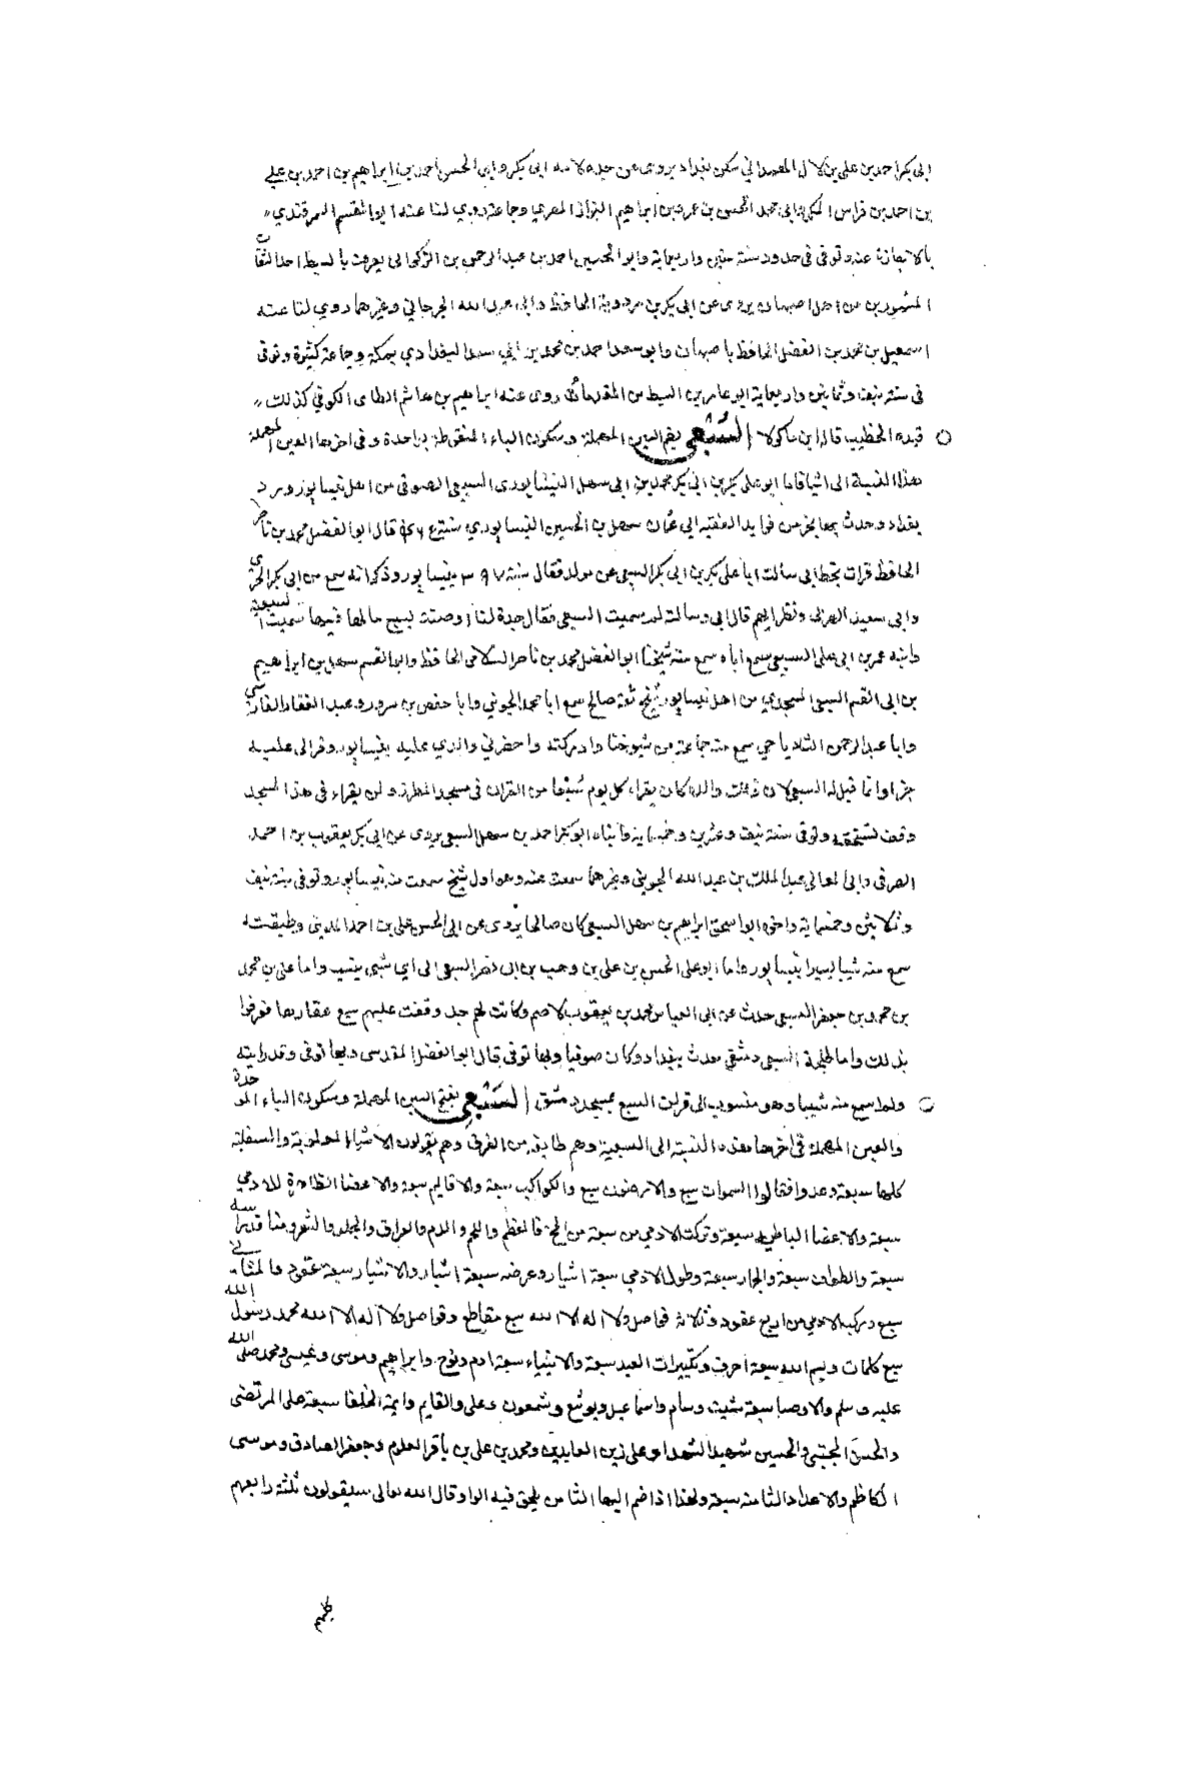 ابى بكر احمد بن على بن لال الهمدانى سكن بغداد يروى عن جده لامه ابى بكر وابى الحسن احمد بن ابراهيم بن احمد بن على
بن احمد بن فراس المكى وابى محمد الحسن بن عمر بن ابراهيم البزاز المصرى وجماعة روى لنا عنه ابو القسم السمرقندي
بالاجازة عنه وتوفى فى حدود سنة ستين واربعماية وابو الحسين احمد بن عبد الرحمن بن الذكوانى يعرف بالسبط احد الثقات
المشهورين من اهل اصبهان يروى عن ابى بكر بن مردوية الحافظ وابى عبد الله الجرجاني وغيرهما روي لنا عنه
اسمعيل بن محمد بن الفضل الحافظ باصبهان وابو سعد احمد بن محمد بن ابي سعد البغدادي بمكة وجماعة كثيرة وتوفى
فى سنة نيف وثمانين واربعماية ابو عامر بن السبط من روى عنه ابراهيم بن هاشم الكوفي كذلك
قيده الخطيب قاله ابن ماكولا السُبْعى بضم السين المهملة وسكون الباء المنقوطة بواحدة وفى اخرها العين المهملة
هذا النسبة الى اشيا فاما ابو على بكر بن ابى بكر محمد بن ابى سهل النيسابورى السبعى الصوفى من اهل نيسابور ورد
بغداد وحدث بها بجزء من فوايد الفقيه ابي عثمان سهل بن الحسين النيسابوري سنة قال ابو الفضل محمد بن ناصر
الحافظ قرات بخط ابى سالت ابا على بكر بن ابى بكر السبعى عن مولده فقال سنة ٣٩٧ بنيسابور وذكر انه سمع من ابى بكر الحيرى
وابى سعيد الصيرفى ونظرايهم قال ابى وسالته لم سميت السبعى فقال جدة لنا اوصت بسبع مالها فيها سميت السبعية
وابنه عمر بن ابى على السبعى سمع اباه سمع منه شيخنا ابو الفضل محمد بن ناصر السلامى الحافظ وابو القسم سهل بن ابراهيم
بن ابى القسم السبعى المسجدي من اهل نيسابور شيخ ثقة صالح سمع ابا محمد الجوينى وابا حفص بن مسرور وعبد الغفار الفارسى
وابا عبد الرحمن الشاذياخي سمع منه جماعة من شيوخنا وادركته واحضرني والدي عليه بنيسابور وقرالى عليه
جزءا وانما قيل له السبعى لان والده كان يقراء كل يوم سُبعا من القران فى مسجد المطرز ولمن يقراء فى هذا المسجد
وقف وتوفى سنة نيف وعشرين وخمسماية وابناه ابو بكر احمد بن سهل السبعى يروى عن ابى بكر يعقوب بن احمد
الصرفى وابى المعالى عبد الملك بن عبد الله الجوينى وغيرهما سمعت منه وهو اول شيخ سمعت منه بنيسابور وتوفى سنة نيف
وثلاثين وخمسماية واخوه ابو اسحق ابراهيم بن سهل السبعى كان صالحا يروى عن ابى الحسن على بن احمد المدينى وطبقته
سمع منه شيا يسيرا بنيسابور واما ابو على الحسن بن على بن وهب بن ابى نصر السبعى الى اي شى ينسب واما على بن محمد
بن حمود بن جعفر السبعى حدث عن ابى العباس محمد بن يعقوب الاصم وكانت لهم جدة وقفت عليهم سبع عقارها فعرفوا
بذلك واما طلحة السبعى دمشقى حدث ببغداد وكان صوفيا وبها توفى قال ابو الفضل المقدسى وبها توفى وقد رايته
ولم اسمع منه شيا وهو منسوب الى قراة السبع بمسجد دمشق السَبْعى بفتح السين المهملة وسكون الباء الموحدة
والعين المهملة فى اخرها هذه النسبة الى السبعية وهم طايفة من الفرق وهم يقولون الاشياء العلوية والسفلية
كلها سبعة وعدوا فقالوا السموات سبع والارضون سبع والكواكب سبعة والاقاليم سبعة والاعضا الظاهرة للادمي
سبعة والاعضا الباطنه سبعة وتركت الادمي من سبعة من المخ والعظم واللحم والدم والعروق والجلد والشعر ومنافذ راسه
سبعة والطواف سبعة والجمار سبعة وطول الادمي سبعة اشبار وعرضه سبعة اشبار والاشبار سبعة عقود والمثانى
سبع وتركيب الادمي من اربع عقود وثلاثة فواصل ولا اله الا الله سبع مقاطع وفواصل ولا اله الا الله محمد رسول الله
سبع كلمات وبسم الله سبعة احرف وتكبيرات العيد سبعة والانبياء سبعة ادم ونوح وابراهيم وموسى وعيسى ومحمد صلى الله
عليه وسلم والاوصيا سبعة شيث وسام واسماعيل ويوشع وشمعون وعلى والقايم وايمة الخلفا سبعة على المرتضى
والحسن المجتبى والحسين شهيد الشهدا وعلى زين العابدين ومحمد بن على بن باقر العلوم وجعفر الصادق وموسى
الكاظم والاعداد الثامنة سبعة ولهذا اذا ضم اليها الثامن يلحق فيه الواو قال الله تعالى سيقولون ثلثة رابعهم
كلبهم